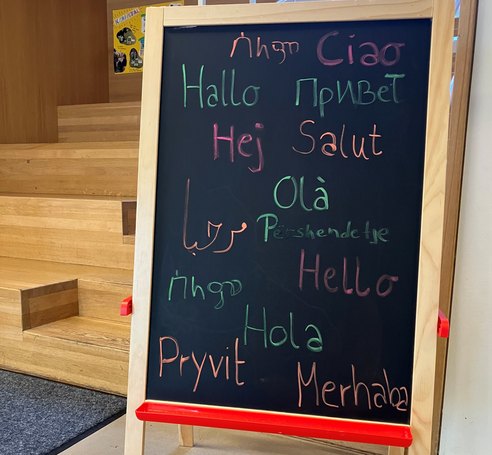 Ciao
Hallo Привет
Hej Salut
Olà
مرحبا Përshendetje
Hello
Hola
Pryvit
Merhaba